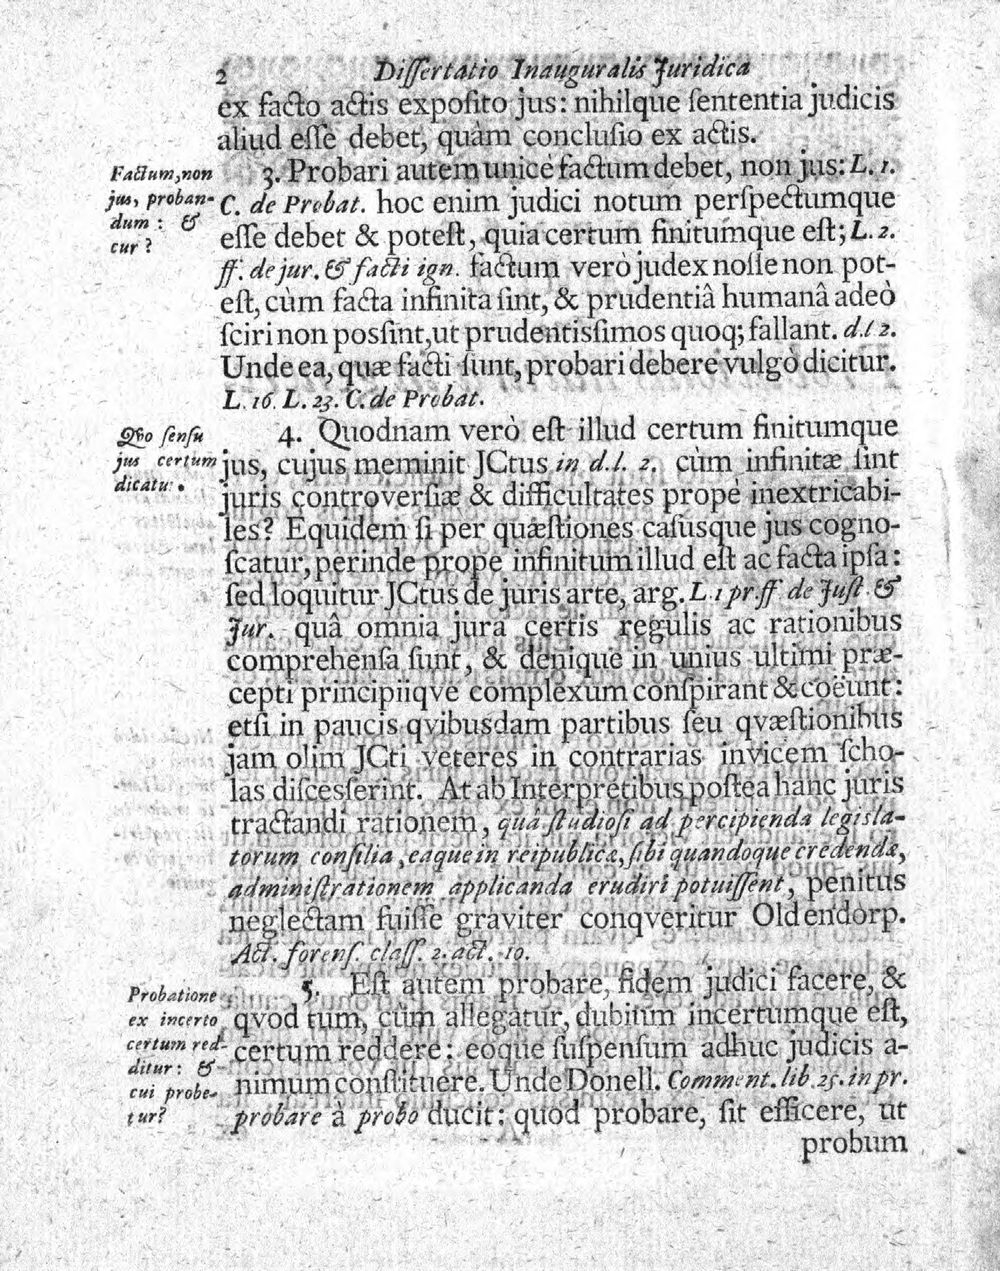 2 Diſſertatio Inauguralis Juridica
ex facto actis expoſito jus: nihilque ſententia judicis
aliud eſſe debet, quàm concluſio ex actis.
Factum, non
jus, proban-
dum : &
cur ?
3. Probari autem unicè factum debet, non jus: L. 1.
C. de Probat. hoc enim judici notum perſpectumque
eſſe debet & poteſt, quia certum finitumque eſt; L. 2.
ff. de jur. & facti ign. factum verò judex noſſe non pot-
eſt, cùm facta infinita ſint, & prudentiâ humanâ adeò
ſciri non posſint, ut prudentisſimos quoq; fallant. d. l 2.
Unde ea, quæ facti ſunt, probari debere vulgò dicitur.
L. 16. L. 23. C. de Probat.
Qvo ſenſu
jus certum
dicatur.
4. Quodnam verò eſt illud certum finitumque
jus, cujus meminit JCtus in d. l. 2. cùm infinitæ ſint
juris controverſiæ & difficultates propè inextricabi-
les? Equidem ſi per quæſtiones caſusque jus cogno-
ſcatur, perinde prope infinitum illud eſt ac facta ipſa:
ſed loquitur JCtus de juris arte, arg. L. 1 pr. ff de Juſt. &
Jur. quâ omnia jura certis regulis ac rationibus
comprehenſa ſunt, & denique in unius ultimi præ-
cepti principiiqve complexum conſpirant & coëunt:
etſi in paucis qvibusdam partibus ſeu qvæſtionibus
jam olim JCti veteres in contrarias invicem ſcho-
las diſcesſerint. At ab Interpretibus poſtea hanc juris
tractandi rationem, quâ ſtudioſi ad percipienda legisla-
torum conſilia, eaque in reipublicæ, ſibi quandoque credendæ,
adminiſtrationem applicanda erudiri potuiſſent, penitus
neglectam fuiſſe graviter conqveritur Oldendorp.
Act. forenſ. claſſ. 2. act. 10.
Probatione
ex incerto
certum red-
ditur: &
cui probe-
tur?
5. Eſt autem probare, fidem judici facere, &
qvod tum, cùm allegatur, dubium incertumque eſt,
certum reddere: eoque ſuſpenſum adhuc judicis a-
nimum conſtituere. Unde Donell. Comment. lib. 25. in pr.
probare à probo ducit: quod probare, ſit efficere, ut
probum